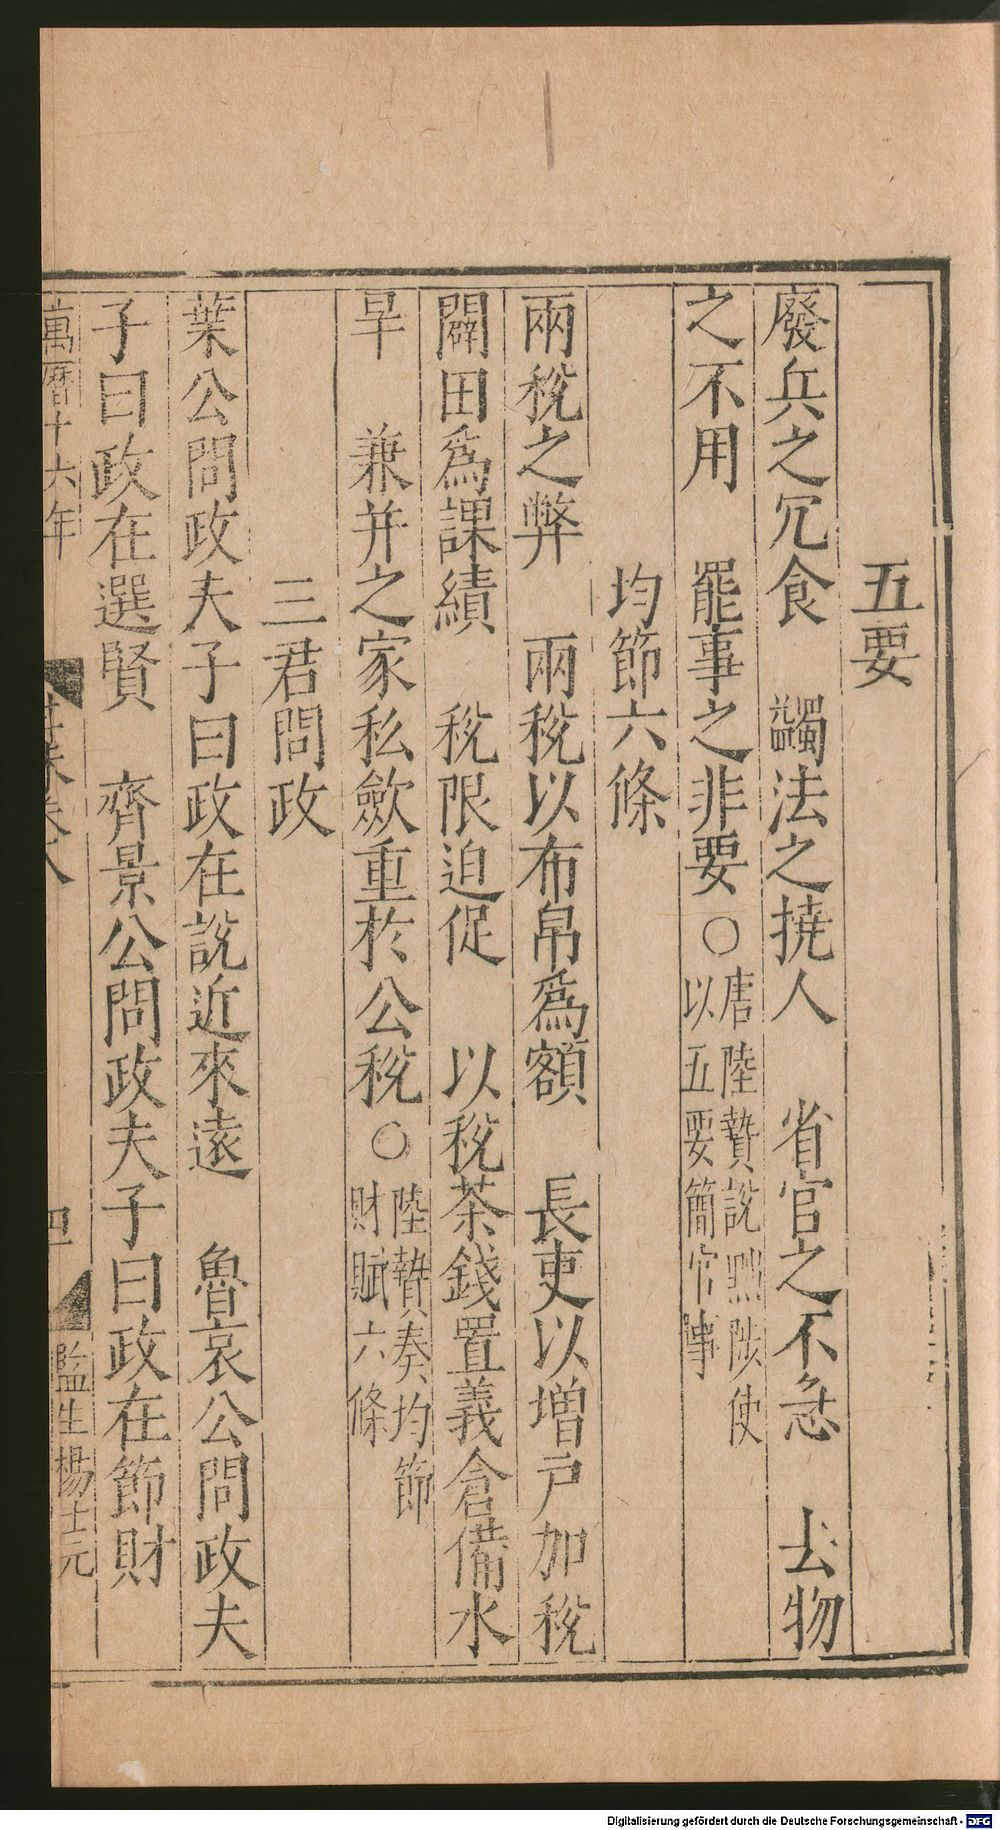 五要
廢兵之冗食　蠲法之撓人　省官之不急　去物
之不用　罷事之非要○唐陸贄說黜陟使
以五要簡官事
均節六條
兩稅之弊　兩稅以布帛爲額　長吏以增戸加稅
闢田爲課績　稅限迫促　以稅茶錢置義倉備水
旱　兼并之家私斂重於公稅○陸贄奏均節
財賦六條
三君問政
葉公問政夫子曰政在說近來遠　魯哀公問政夫
子曰政在選賢　齊景公問政夫子曰政在節財
萬曆十六年
卷八
四
監生楊士元
Digitalisierung gefördert durch die Deutsche Forschungsgemeinschaft - DFG